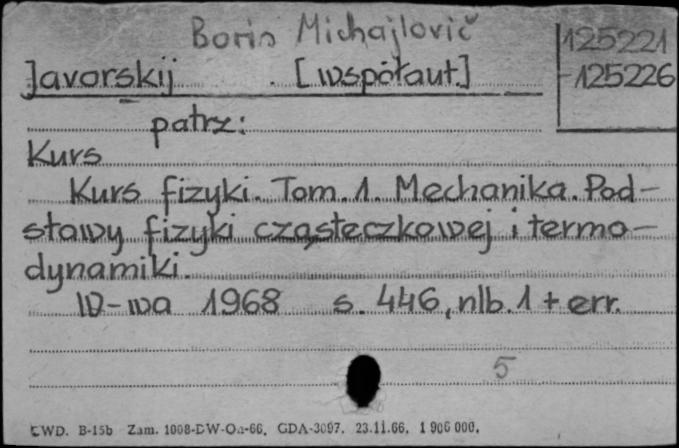 Boris Michajlovič
125221
Javorskij [współaut.]
-125226
patrz:
Kurs
Kurs fizyki. Tom. 1. Mechanika. Pod-
stawy fizyki cząsteczkowej i termo-
dynamiki.
W-wa 1968 s. 446, nlb. 1 + err.
5
CWD. B-15b Zam. 1008-DW-Oa-66. GDA-3097. 23.11.66. 1 906 000.